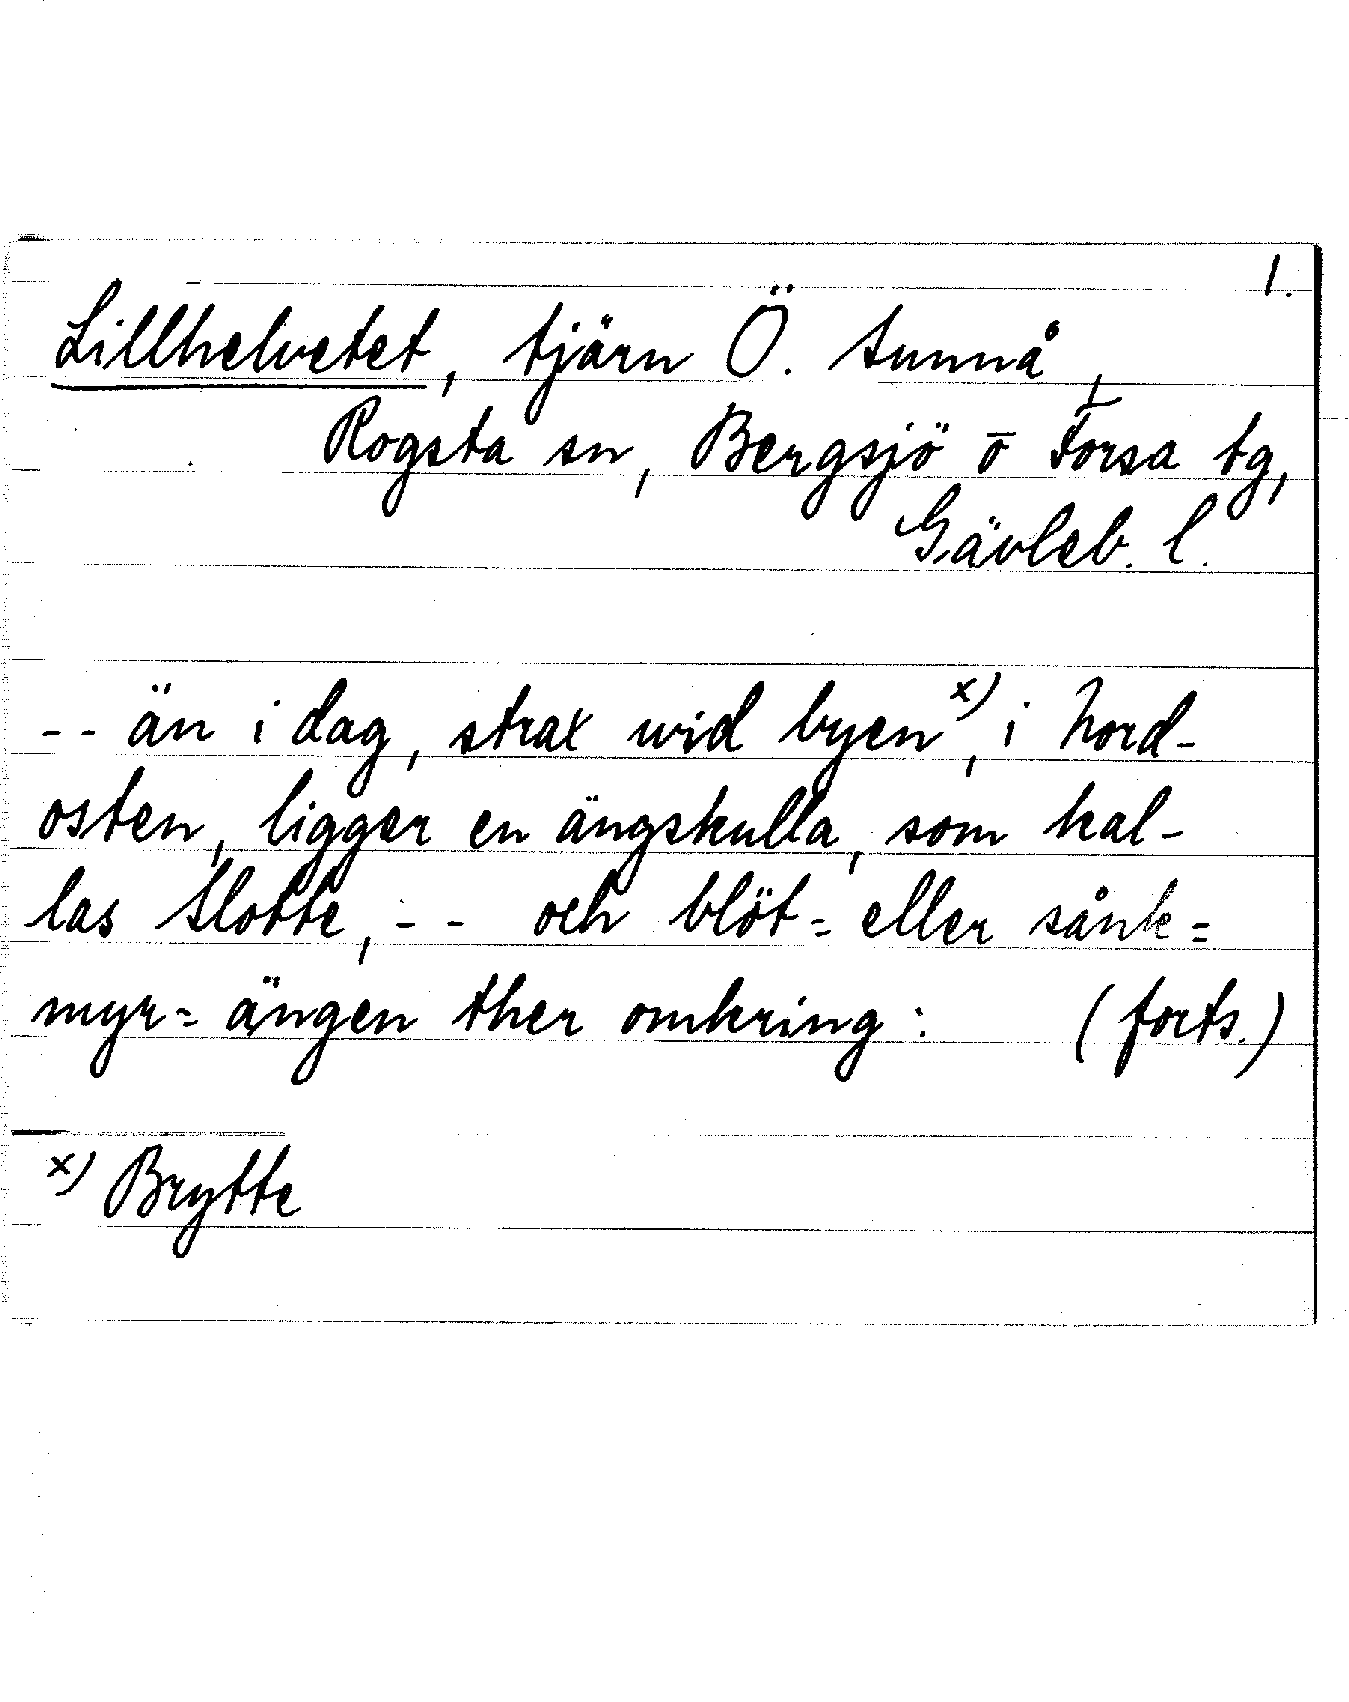 1.
Lillhelvetet, tjärn Ö. Sunnå,
Rogsta sn, Bergsjö o Forsa tg,
Gävleb. l.
-- än i dag, strax wid byen x), i Nord-
osten, ligger en ängskulla, som kal-
las Slotte, -- och blöt= eller sånk=
myr= ängen ther omkring: (forts.)
x) Brytte